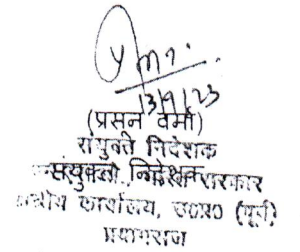 13/9/23
(प्रसन वर्मा)
संयुक्त निदेशक
संयुक्त निदेशक सरकार
कार्यालय, उ०प्र० (पूर्व)
प्रयागराज